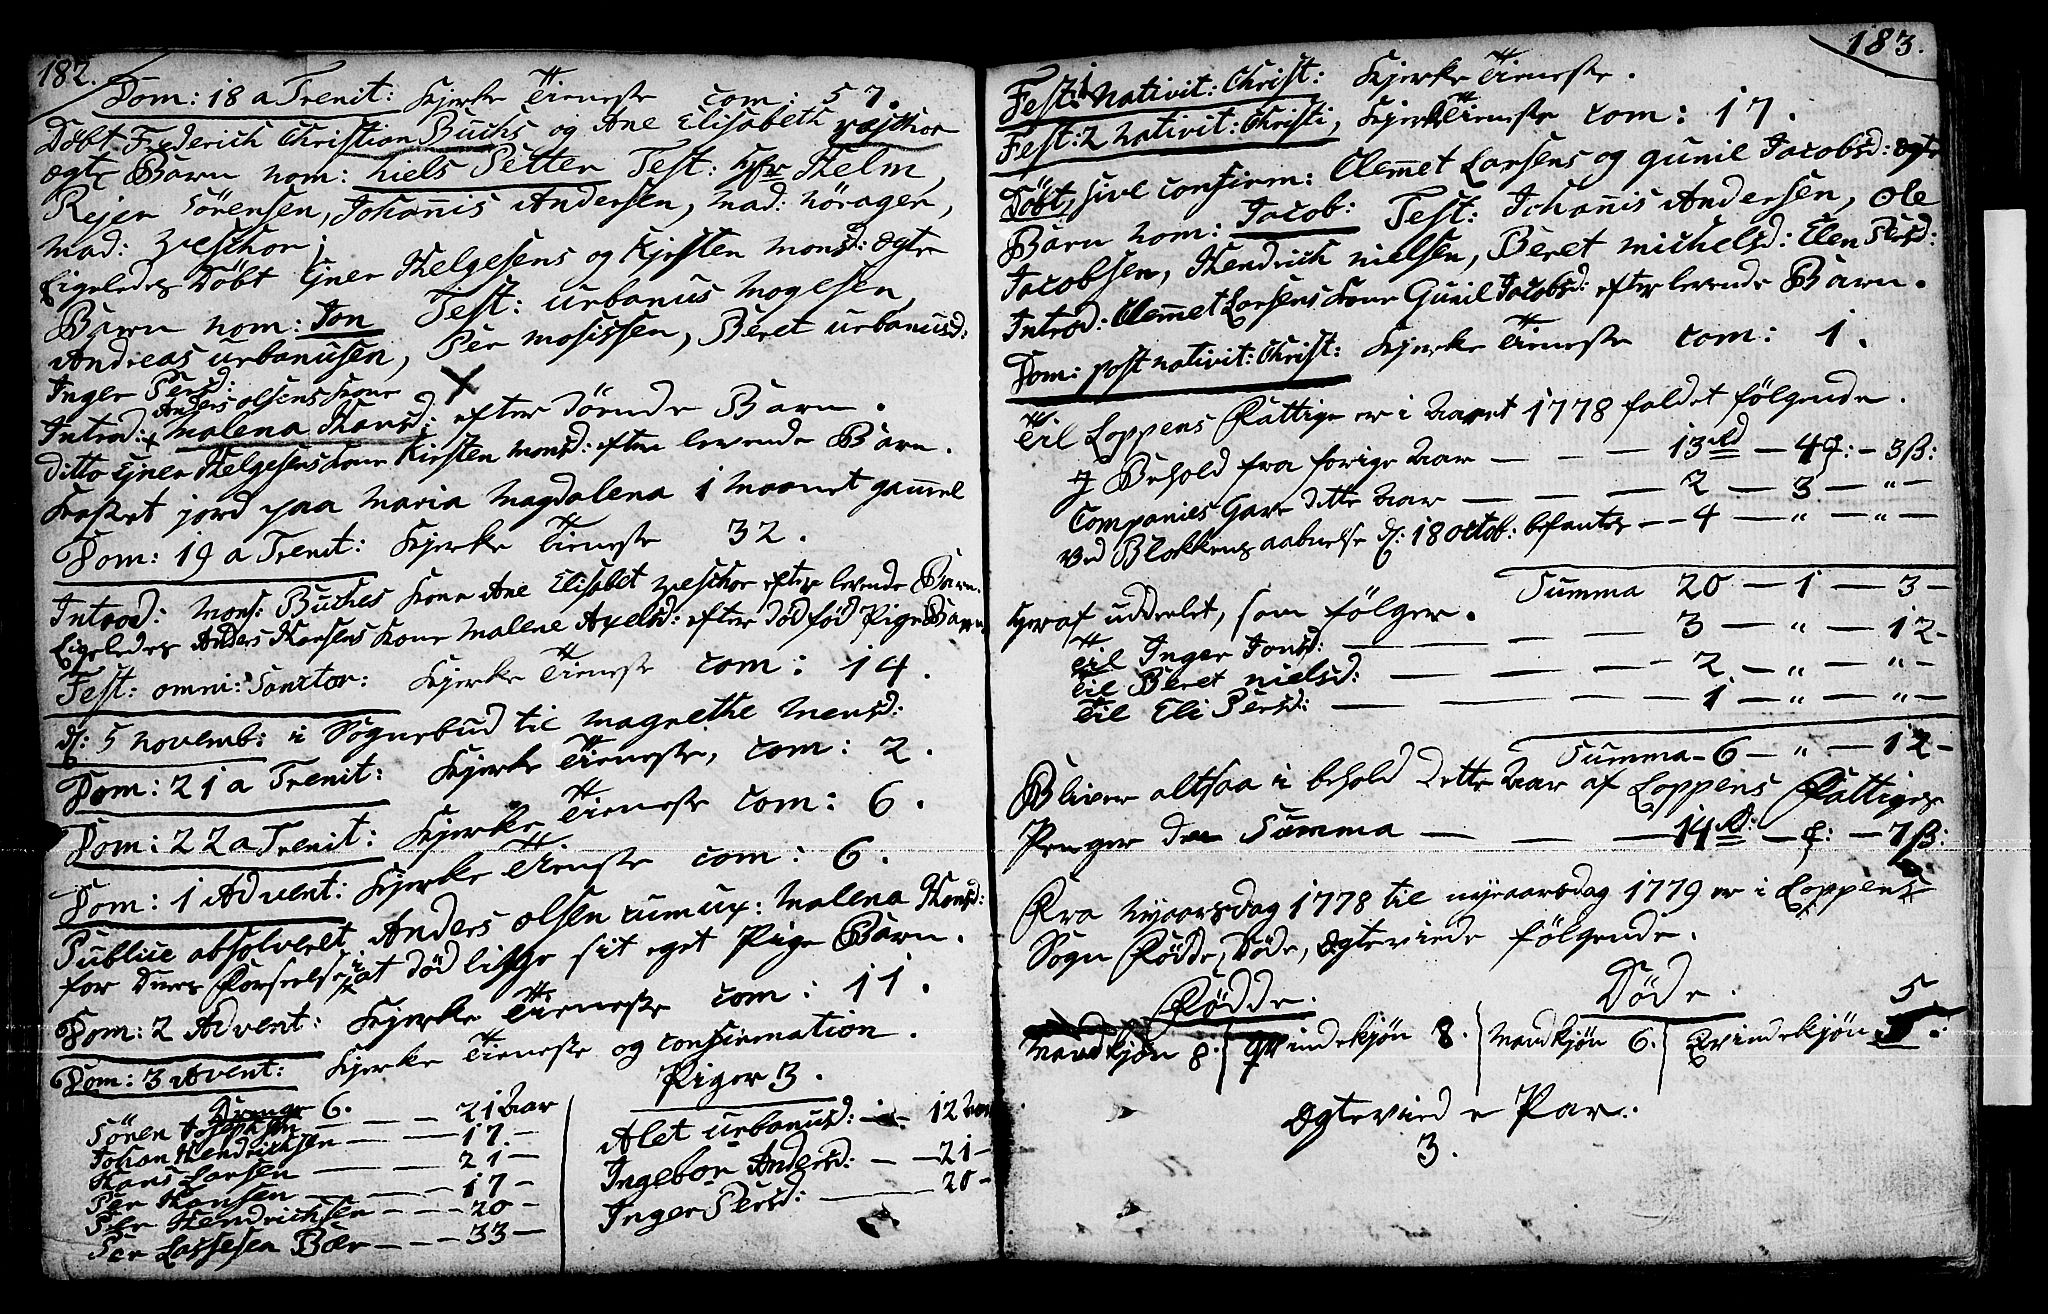 182.
Dom: 18 a Trenit: Kjerke Tieneste com: 57.
Döbt Frederich Christian Buchs og Ane Elisabeth
ægte Barn nom: Niels Petter Test: Helm,
Rejer Sörensen, Johannis Andersen, Mad: Nörager,
Mad: Veschor;
Ligeledes Döbt Ejner Helgesens og Kjrsten Monsd: ægte
Barn nom: Jon Test: Urbanus Mogesen,
Andreas Urbanusen, Per Mosissen, Beret Urbanusd:
Inger Persd:
Anders Olsens Kone
Introd: + Malena Hansd: efter döende Barn.
Ditto Ejner Helgesens Kone Kirsten Monsd: efter levende Barn.
Kastet jord paa Maria Magdalena i Maanet gammel
Dom: 19 a Trenit: Kjerke Tieneste 32.
Introd: Mons: Buches Kone Ane Elisabet Veschor efter levende Barn.
Ligeledes Anders Hansens Kone Malene Axelsd: efter dödfød Pige Barn.
Fest: omni: Sanctor: Kjerke Tieneste com: 14.
d: 5 Novemb: i Sognebud til Magrethe Mensd:
Dom: 21 a Trenit: Kjerke Tieneste, com: 2.
Dom: 22 a Trenit: Kjerke Tieneste com: 6.
Dom: 1 Advent: Kjerke Tieneste com: 6.
Publice absolveret Anders Olsen cum ux: Malena Hansd:
for Deres Forseelse i at död ligge sit eget Pige Barn.
Dom: 2 Advent: Kjerke Tieneste com: 11.
Dom: 3 Advent: Kjerke Tieneste og confirmation.
Drenge 6.
Sören Josephsen — — 21 Aar
Johan Hendrichsen — — 17 –
Hans Larsen — — 21 –
Per Hansen — — 17 –
Per Hendrichsen — — 20 –
Per Lassesen Bær — — 33 –
Piger 3.
Alet Urbanusd: — 12 Aar
Ingebor Andersd: — — 21 –
Inger Persd: — 20 –
183.
Fest: 1 Nativit: Christ: Kjerke Tieneste.
Fest: 2 Nativit: Christi, Kjerke Tieneste com: 17.
Döbt, sive confirm: Clemet Larsens og Gunil Jacobsd: ægte
Barn nom: Jacob: Test: Johannis Andersen, Ole
Jacobsen, Hendrich Nielsen, Beret Michelsd: Elen Persd:
Introd: Clemet Larsens Kone Gunil Jacobsd: efter levende Barn.
Dom: post Nativit: Christ: Kjerke Tieneste com: 1.
Til Loppens Fattige er i Aaret 1778 faldet følgende.
J Behold fra forige Aar — — — 13 rd — 4 — 3 ß:
Companies Gave dette Aar — — — 2 — 3 — " —
Ved Blokkens aabnelse d: 18 Octob: befantes — — 4 — " — " —
Summa 20 — 1 — 3 —
Heraf uddeelet, som følger.
Til Inger Jonsd: — — — 3 — " — 12 –
Til Beret Nielsd: — — — 2 — " — " –
Til Eli Persd: — — — 1 — " — " –
Summa – 6 — " — 12 –
Bliver altsaa i behold dette Aar af Loppens Fattiges
Penger den Summa — — — 14 rd: — — 7 ß:
Fra Nyaarsdag 1778 til nyeaarsdag 1779 er i Loppens
Sogn Fødde, Døde, Ægteviede følgende.
Fødde. Døde.
5
Mandkjön 8. Qvindekjön 8. Mandkjön 6. Qvindekjön
Ægteviede Par.
3.